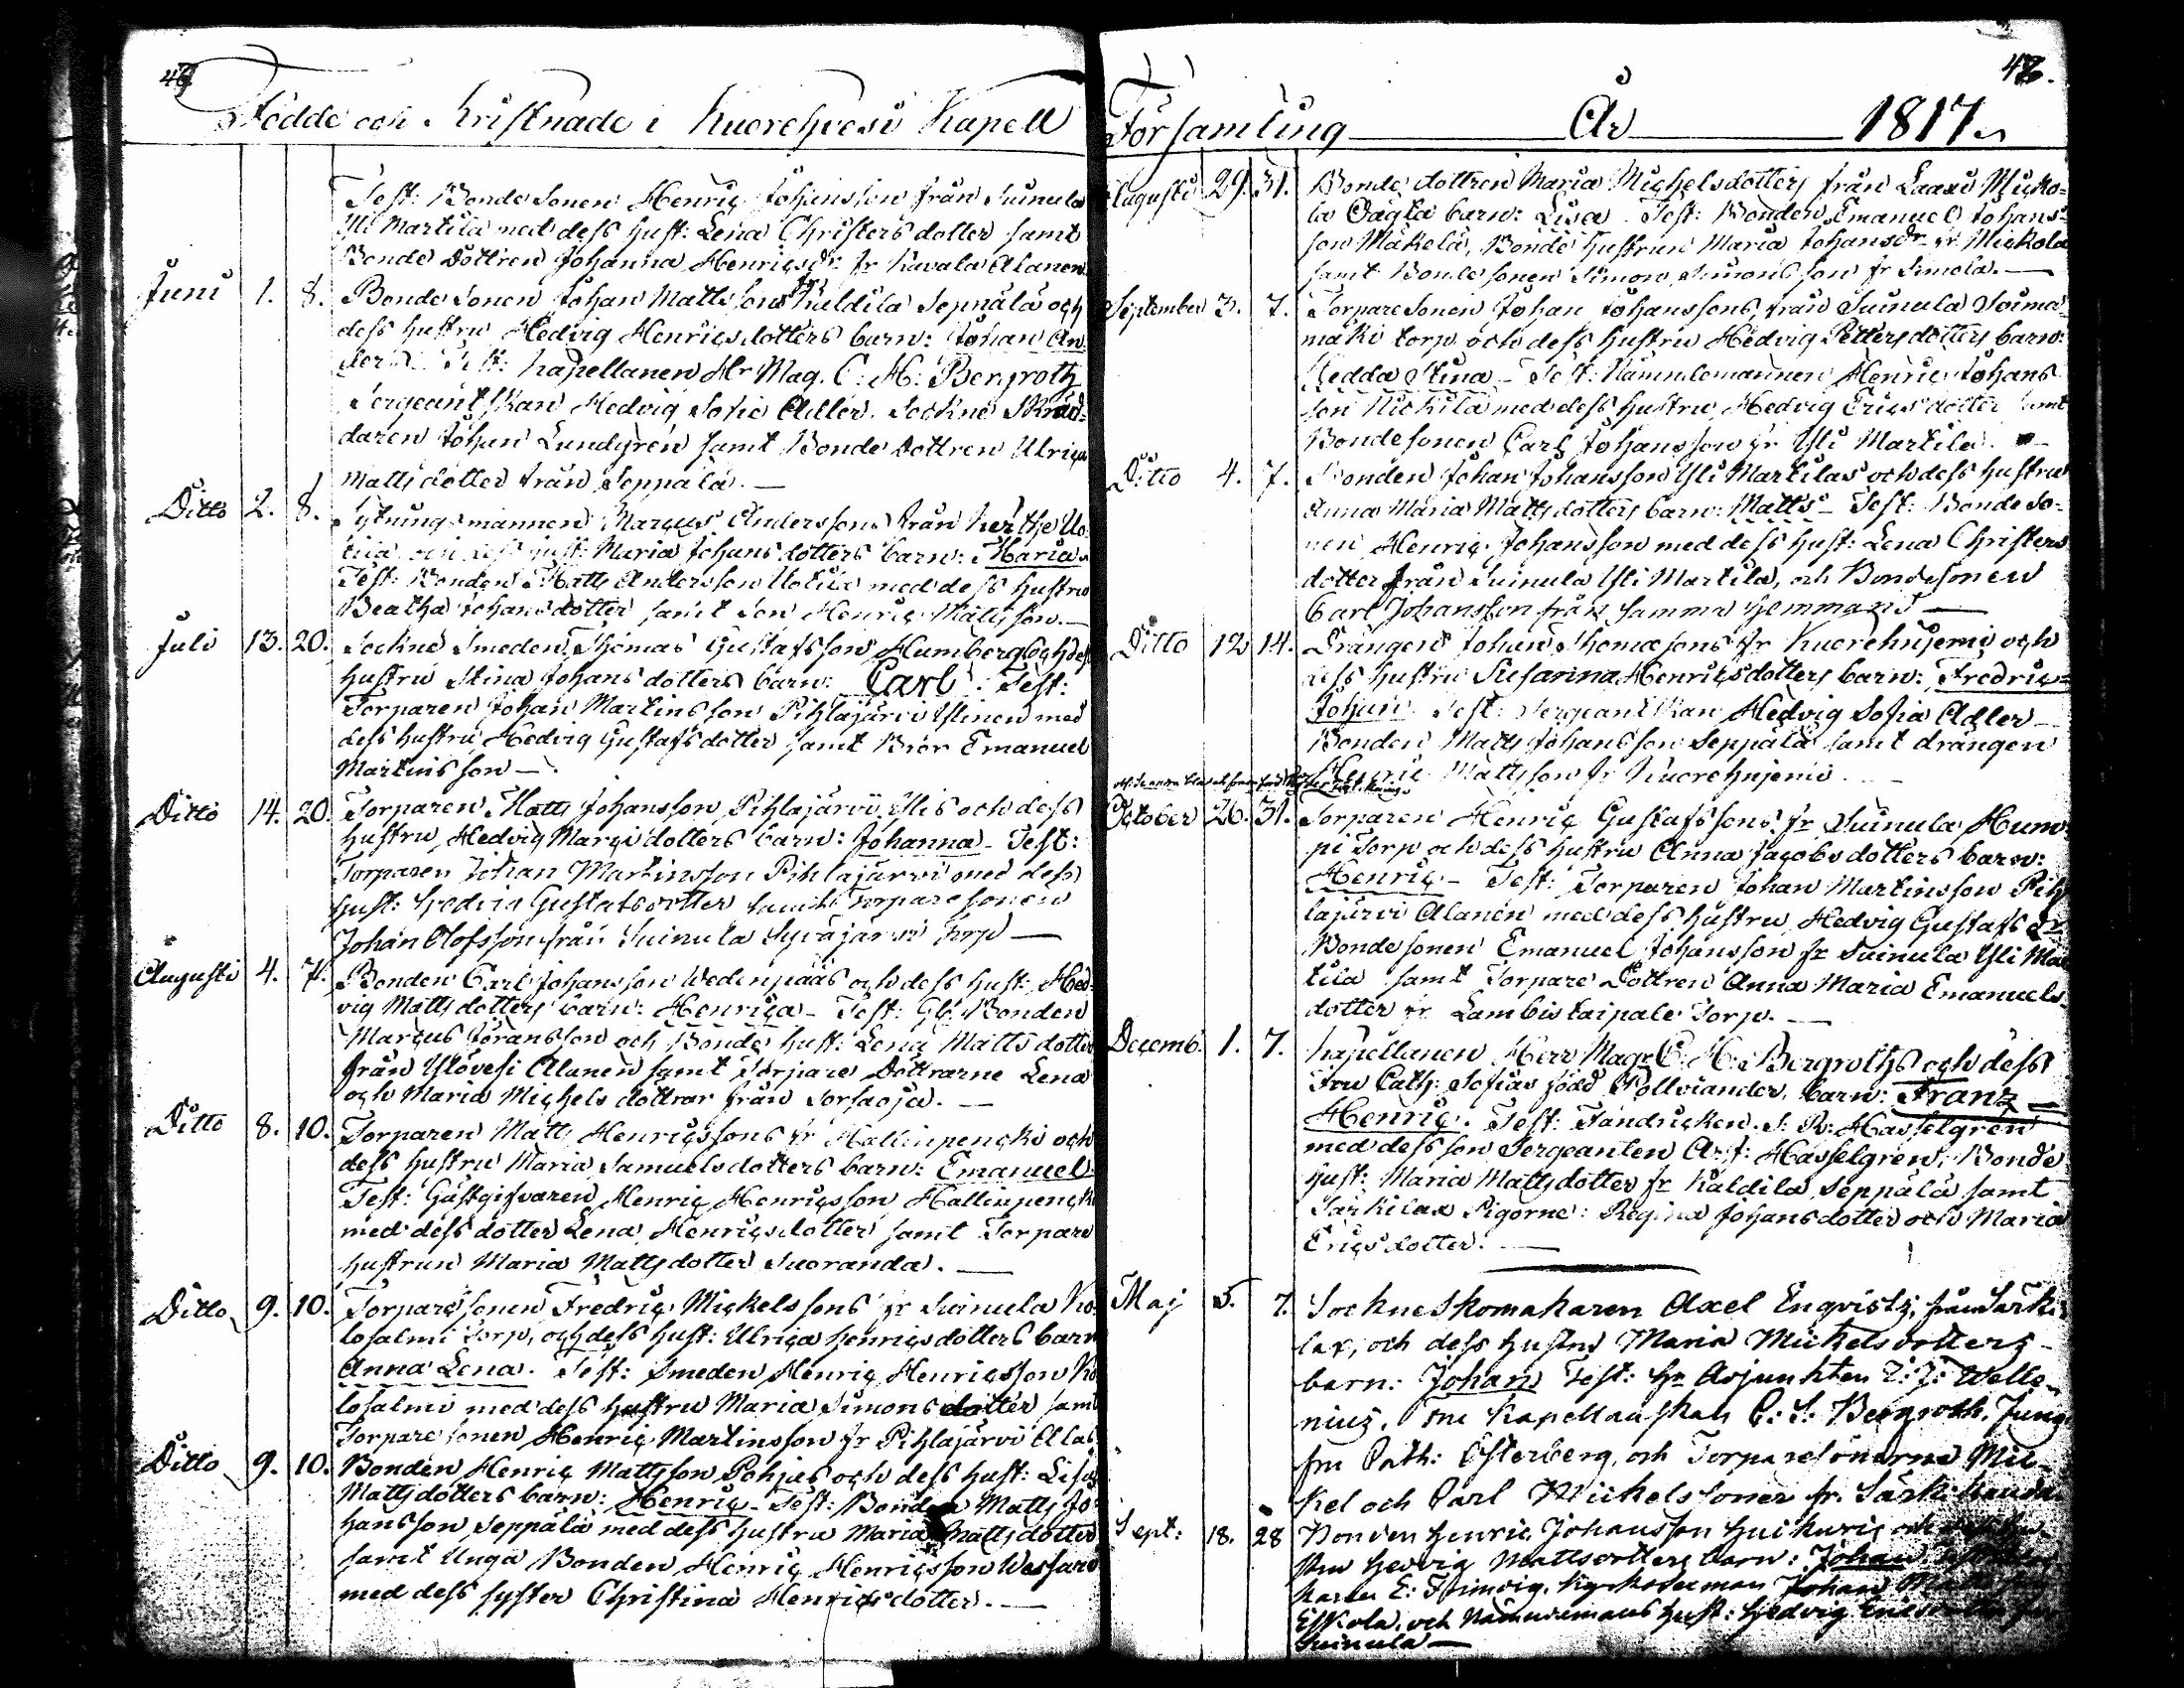 46
Födde och Kristnade i Kuorehvesi Kapell
Test: Bonde Sonen Henric Johansson från Suinula
Yli Martila med dess hust: Lena Christers dotter samt
Bonde Dottren Johanna Henricsdr fr Kavala Alanen
Juni 1. 8. Bonde Sonen Johan Mattssons fr Kaldila Seppälä och
dess hustru Hedvig Henricsdotters barn: Johan An-
ders Test: Kapellanen Hr Mag. C: H: Bergroth
Sergeantskan Hedvig Sofia Adler. Sockne Skräd-
daren Johan Lundgrén samt Bonde Dottren Ulrica
Mattsdotter från Seppälä. —
Ditto 2. 8. Sytningsmannen Marcus Anderssons från
och dess hust: Maria Johansdotters barn: Maria
Test: Bonden Matts Andersson Uotila med dess hustru
Beatha Johansdotter samt Son Henric Mattsson. —
Juli 13. 20. Sockne Smeden Thomas Gustafsson Humberg och dess
hustru Stina Johans dotters barn: Carl. Test:
Torparen Johan Martinsson Pihlajärvi Ylinen med
dess hustru Hedvig Gustafsdotter samt Bror Emanuel
Martinsson —
Ditto 14. 20. Torparen Matts Johansson Pihlajärvi Ylis och dess
hustru Hedvig Marcidotters barn: Johanna - Test:
Torparen Johan Martinsson Pihlajärvi med dess
hust: Hedvig Gustafsdotter samt Torparesonen
Johan Olofsson från Suinula Syväjärvi torp —
Augusti 4. 7. Bonden Carl Johansson Wedenpääs och dess hust: Hed-
vig Mattsdotters barn: Henrica - Test: Gl. Bonden
Marcus Göransson och Bonde hust: Lena Matts dotter
från Ylövesi Alanen samt Torpare Döttrarne Lena
och Maria Michels döttrar från Sorsaoja. —
Ditto 8. 10. Torparen Matts Henricssons fr Hallinpencki och
dess hustru Maria Samuelsdotters barn: Emanuel.
Test: Gästgifvaren Henric Henricsson Hallinpencki
med dess dotter Lena Henricsdotter samt Torpare
hustrun Maria Mattsdotter Suoranda. —
Ditto 9. 10. Torparesonen Fredric Mickelssons fr Suinula Ko-
losalmi Torp, och dess hust: Ulrica Henricsdotters barn
Anna Lena. Test: Smeden Henric Henricsson Ko-
losalmi med dess hustru Maria Simons dotter samt
Torpare Sonen Henric Martinsson fr Pihlajärvi
Ditto 9. 10. Bonden Henric Mattsson Pohjas och dess hust: Lisa
Mattsdotters barn: Henric - Test: Bonden Matts Jo-
hansson Seppälä med dess hustru Maria Mattsdotter
samt Unga Bonden Henric Henricsson Wessari
med dess syster Christina Henricsdotter. —
Församling År 1817.
Augusti 29. 31. Bonde dottren Maria Michelsdotters från Laasi Micko-
la barn: Lisa. Test: Bonden Emanuel Johans-
son Mäkelä, Bonde hustrun Maria Johansdr fr Mickola
samt Bonde sonen Simon Simonsson fr Simola. —
September 3. 7. Torparesonen Johan Johanssons från Suinula
mäki torp och dess hustru Hedvig Pettersdotters barn:
Hedda Stina - Test: Nämndemannen Henric Johans
son med dess hustru Hedvig Ericsdotter samt
Bondesonen Carl Johansson fr Yli Martila. —
Ditto 4. 7. Bonden Johan Johansson Yli Martilas och dess hustru
Anna Maria Mattsdotters barn: Matts - Test: Bonde So-
nen Henric Johansson med dess hust: Lena Christers
dotter från Suinula Yli Martila, och Bondesonen
Carl Johansson från samma hemmans —
Ditto 12 14. Drängens Johan Thomæsons fr Kuorehnjemi och
dess hustru Susanna Henricsdotters barn: Fredric
Johan. Test: Sergeantskan Hedvig Sofia Adler -
Bonden Matts Johansson Seppälä samt drängen
Henric Mattsson fr Kuorehnjemi
October 26. 31. Torparen Henric Gustafssons fr Suinula Hum-
pi Torp och dess hustru Anna Jacobsdotters barn:
Henric - Test: Torparen Johan Martinsson Pih-
lajärvi Alanen med dess hustru Hedvig Gustafs dr
Bondesonen Emanuel Johansson fr Suinula Yli Mar
tila samt Torpare Dottren Anna Maria Emanuels-
dotter fr Lambis taipale Torp. —
Decemb: 1. 7. Kapellanen Herr Magr C: H: Bergroths och dess
Fru Cath: Sofias född Polviander, barn: Franz
Henric. Test: Fändricken. J. R: Hasselgren
med dess son Sergeanten Hasselgren, Bonde
hust: Maria Mattsdotter fr Kaldila Seppälä samt
Särkilax Pigorne: Regina Johansdotter och Maria
Ericsdotter. —
Maj 5. 7. Sockneskomakaren Axel Enqvists, från Särki-
lax, och dess hustrus Maria Mickelsdotters
barn: Johan Test: Hr Adjunkten Welle-
nius, Fru Kapellanskan C: S: Bergroth, Jung-
fru Cath: Österberg, och Torparesönerne Mic-
kel och Carl Mickelssöner fr.
Sept: 18. 28 Bonden Henric Johansson och
Hedvig Mattsdotters barn: Johan
Johan
och Nämndemans hust: Hedvig
Suinula —